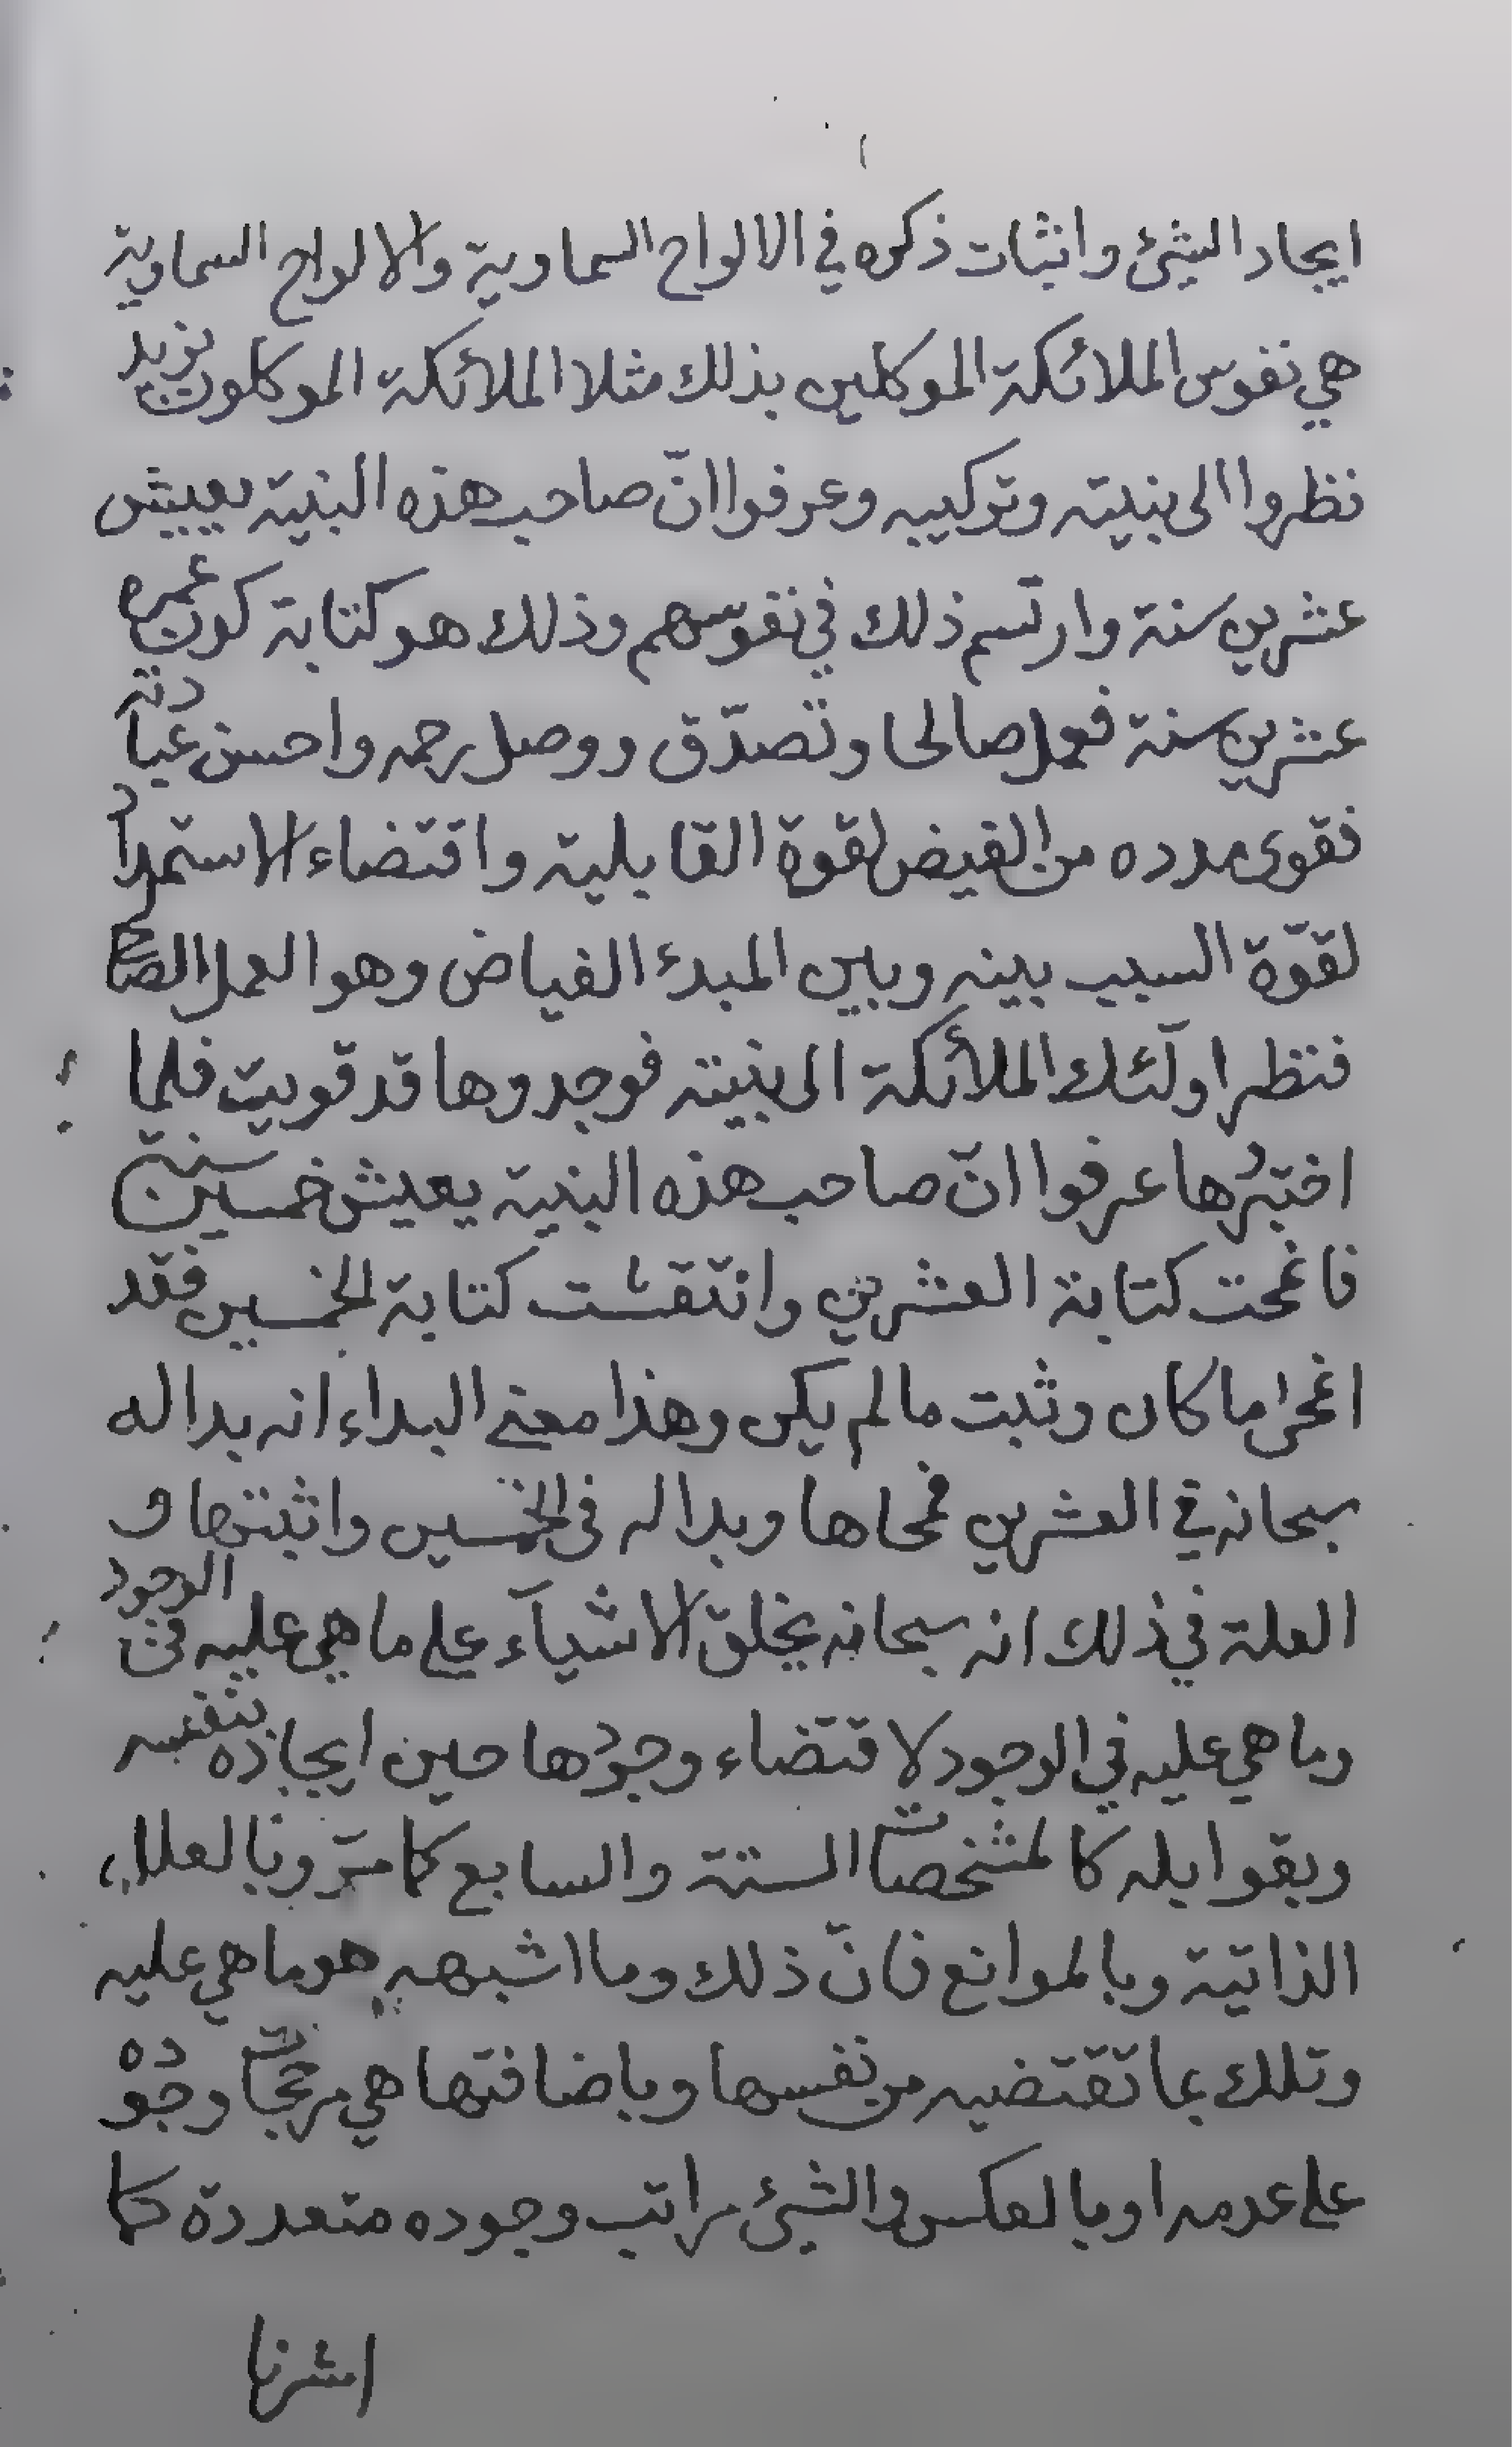 ايجاد الشئ واثبات ذكره في الالواح السماوية والالواح السماوية
هي نفوس الملائكة الموكلين بذلك مثلا الملائكة الموكلون بزيد
نظروا الى بنيته وتركيبه وعرفوا انّ صاحب هذه البنية يعيش
عشرين سنة وارتسم ذلك في نفوسهم وذلك هو كتابة كون عمره
عشرين سنة فعمل صالحا وتصدّق ووصل رحمه واحسن عبادته
فقوى مدده من الفيض لقوة القابلية واقتضاء الاستمداد
لقوّة السبب بينه وبين المبدء الفياض وهو العمل الصالح
فنظر اولٓئك الملأئكة الى بنيته فوجدوها قد قويت فلما
اختبروها عرفوا انّ صاحب هذه البنية يعيش خمسين سنة
فانمحت كتابة العشرين وانتقشت كتابة الخمسين فقد
انمحى ما كان وثبت ما لم يكن وهذا معنى البداء انه بدا له
سبحانه في العشرين فمحاها وبدا له فى الخمسين واثبتها و
العلة في ذلك انه سبحانه يخلق الاشيآء على ما هي عليه فى الوجود
وما هي عليه في الوجود لاقتضاء وجودها حين ايجاده بنفسه
وبقوابله كالمشخصات الستة والسابع كما مرّ وبالعلل
الذاتية وبالموانع فانّ ذلك وما اشبهه هو ما هي عليه
وتلك بما تقتضيه من نفسها وباضافتها هي مرجحات وجوده
على عدمه او بالعكس والشئ مراتب وجوده متعددة كما
اشرنا